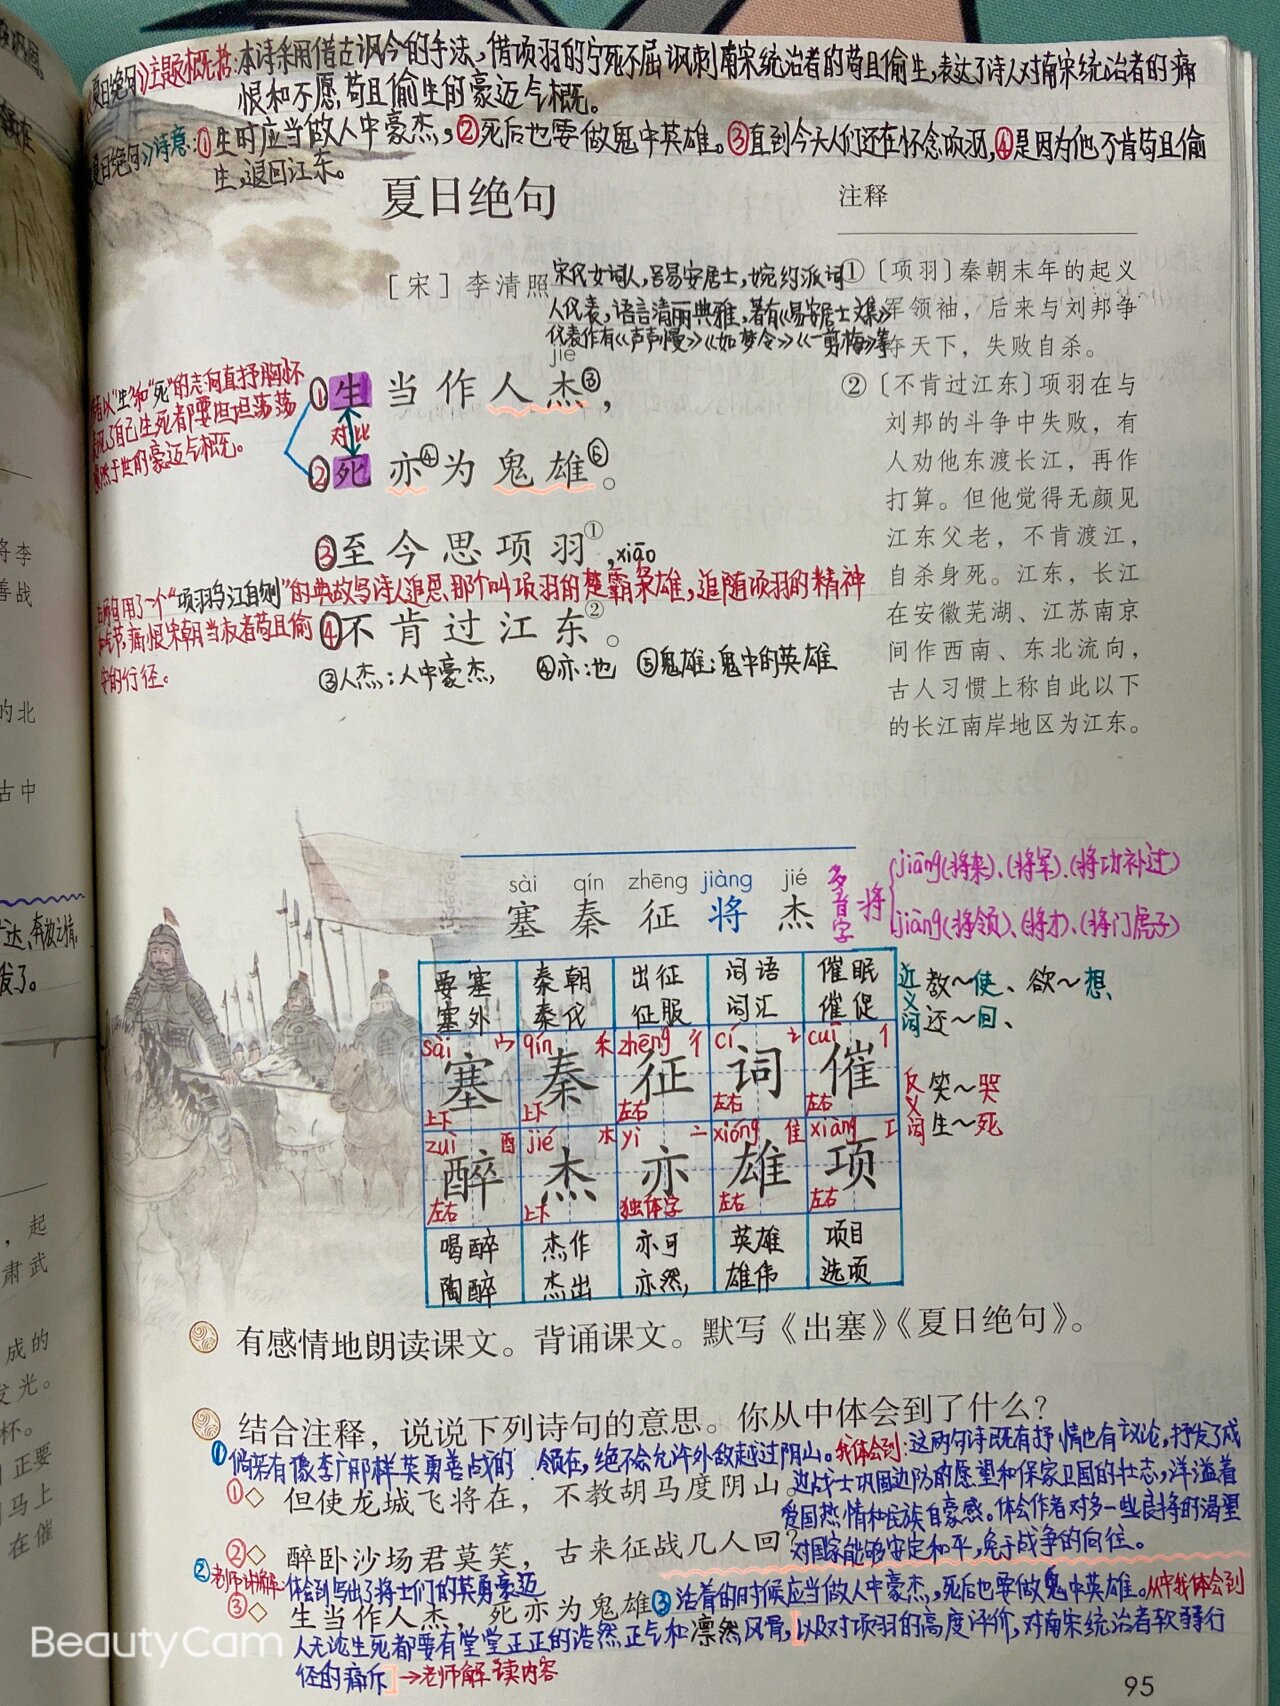 夏日绝句》主题概括:本诗采用借古讽今的手法,借项羽的宁死不屈讽刺南宋统治者的苟且偷生,表达了诗人对南宋统治者的痛
恨和不愿苟且偷生的豪迈气概。
夏日绝句》诗意:①生时应当做人中豪杰,②死后也要做鬼中英雄。③直到今天人们还在怀念项羽,④是因为他不肯苟且偷
生,退回江东。
夏日绝句
[宋]李清照
宋代女词人,号易安居士,婉约派词
人代表,语言清丽典雅,著有《易安居士文集》
代表作有《声声慢》《如梦令》《一剪梅》等
jié
①生当作人杰③,
对比
②死亦④为鬼雄⑤。
以"生"和"死"的志向直抒胸怀
了自己生死者都要坦坦荡荡
然于世的豪迈气概。
③至今思项羽①,
xiāo
用了一个"项羽乌江自刎"的典故写诗人追思那个叫项羽的楚霸枭雄,追随项羽的精神
气节,痛恨宋朝当权者苟且偷
安的行径。
④不肯过江东②。
③人杰:人中豪杰, ④亦:也 ⑤鬼雄:鬼中的英雄
注释
①〔项羽〕秦朝末年的起义
军领袖,后来与刘邦争
夺天下,失败自杀。
②〔不肯过江东〕项羽在与
刘邦的斗争中失败,有
人劝他东渡长江,再作
打算。但他觉得无颜见
江东父老,不肯渡江,
自杀身死。江东,长江
在安徽芜湖、江苏南京
间作西南、东北流向,
古人习惯上称自此以下
的长江南岸地区为江东。
sài qín zhēng jiàng jié
塞 秦 征 将 杰
多音字 将
jiāng(将来)、(将军)、(将功补过)
jiàng(将领)、(将才)、(将门虎子)
要塞 秦朝 出征 词语 催眠
塞外 秦代 征服 词汇 催促
sài 宀 qín 禾 zhēng 彳 cí 讠 cuī 亻
塞 秦 征 词 催
上下 上下 左右 左右 左右
zuì 酉 jié 木 yì 亠 xióng 隹 xiàng 工
醉 杰 亦 雄 项
左右 上下 独体字 左右 左右
喝醉 杰作 亦可 英雄 项目
陶醉 杰出 亦然, 雄伟 选项
近义词 教~使、欲~想、
还~回、
反义词 笑~哭
生~死
有感情地朗读课文。背诵课文。默写《出塞》《夏日绝句》。
结合注释,说说下列诗句的意思。你从中体会到了什么?
①倘若有像李广那样英勇善战的 领在,绝不会允许外敌越过阴山。我体会到:这两句诗既有抒情也有议论,抒发了戍
①◇ 但使龙城飞将在,不教胡马度阴山。
边战士巩固边防的愿望和保家卫国的壮志,洋溢着
爱国热情和民族自豪感。体会作者对多一些良将的渴望
②◇ 醉卧沙场君莫笑,古来征战几人回?
对国家能够安定和平,免于战争的向往。
②老师讲解:体会到写出了将士们的英勇豪迈
③◇ 生当作人杰,死亦为鬼雄
③活着的时候应当做人中豪杰,死后也要做鬼中英雄。从中我体会到
人无论生死都要有堂堂正正的浩然正气和凛然风骨,以及对项羽的高度评价,对南宋统治者软弱行
径的痛斥 →老师解读内容
BeautyCam
95
将李
善战
的北
古中
达、
发了。
,起
肃武
成的
发光。
杯。
正要
马上
在催